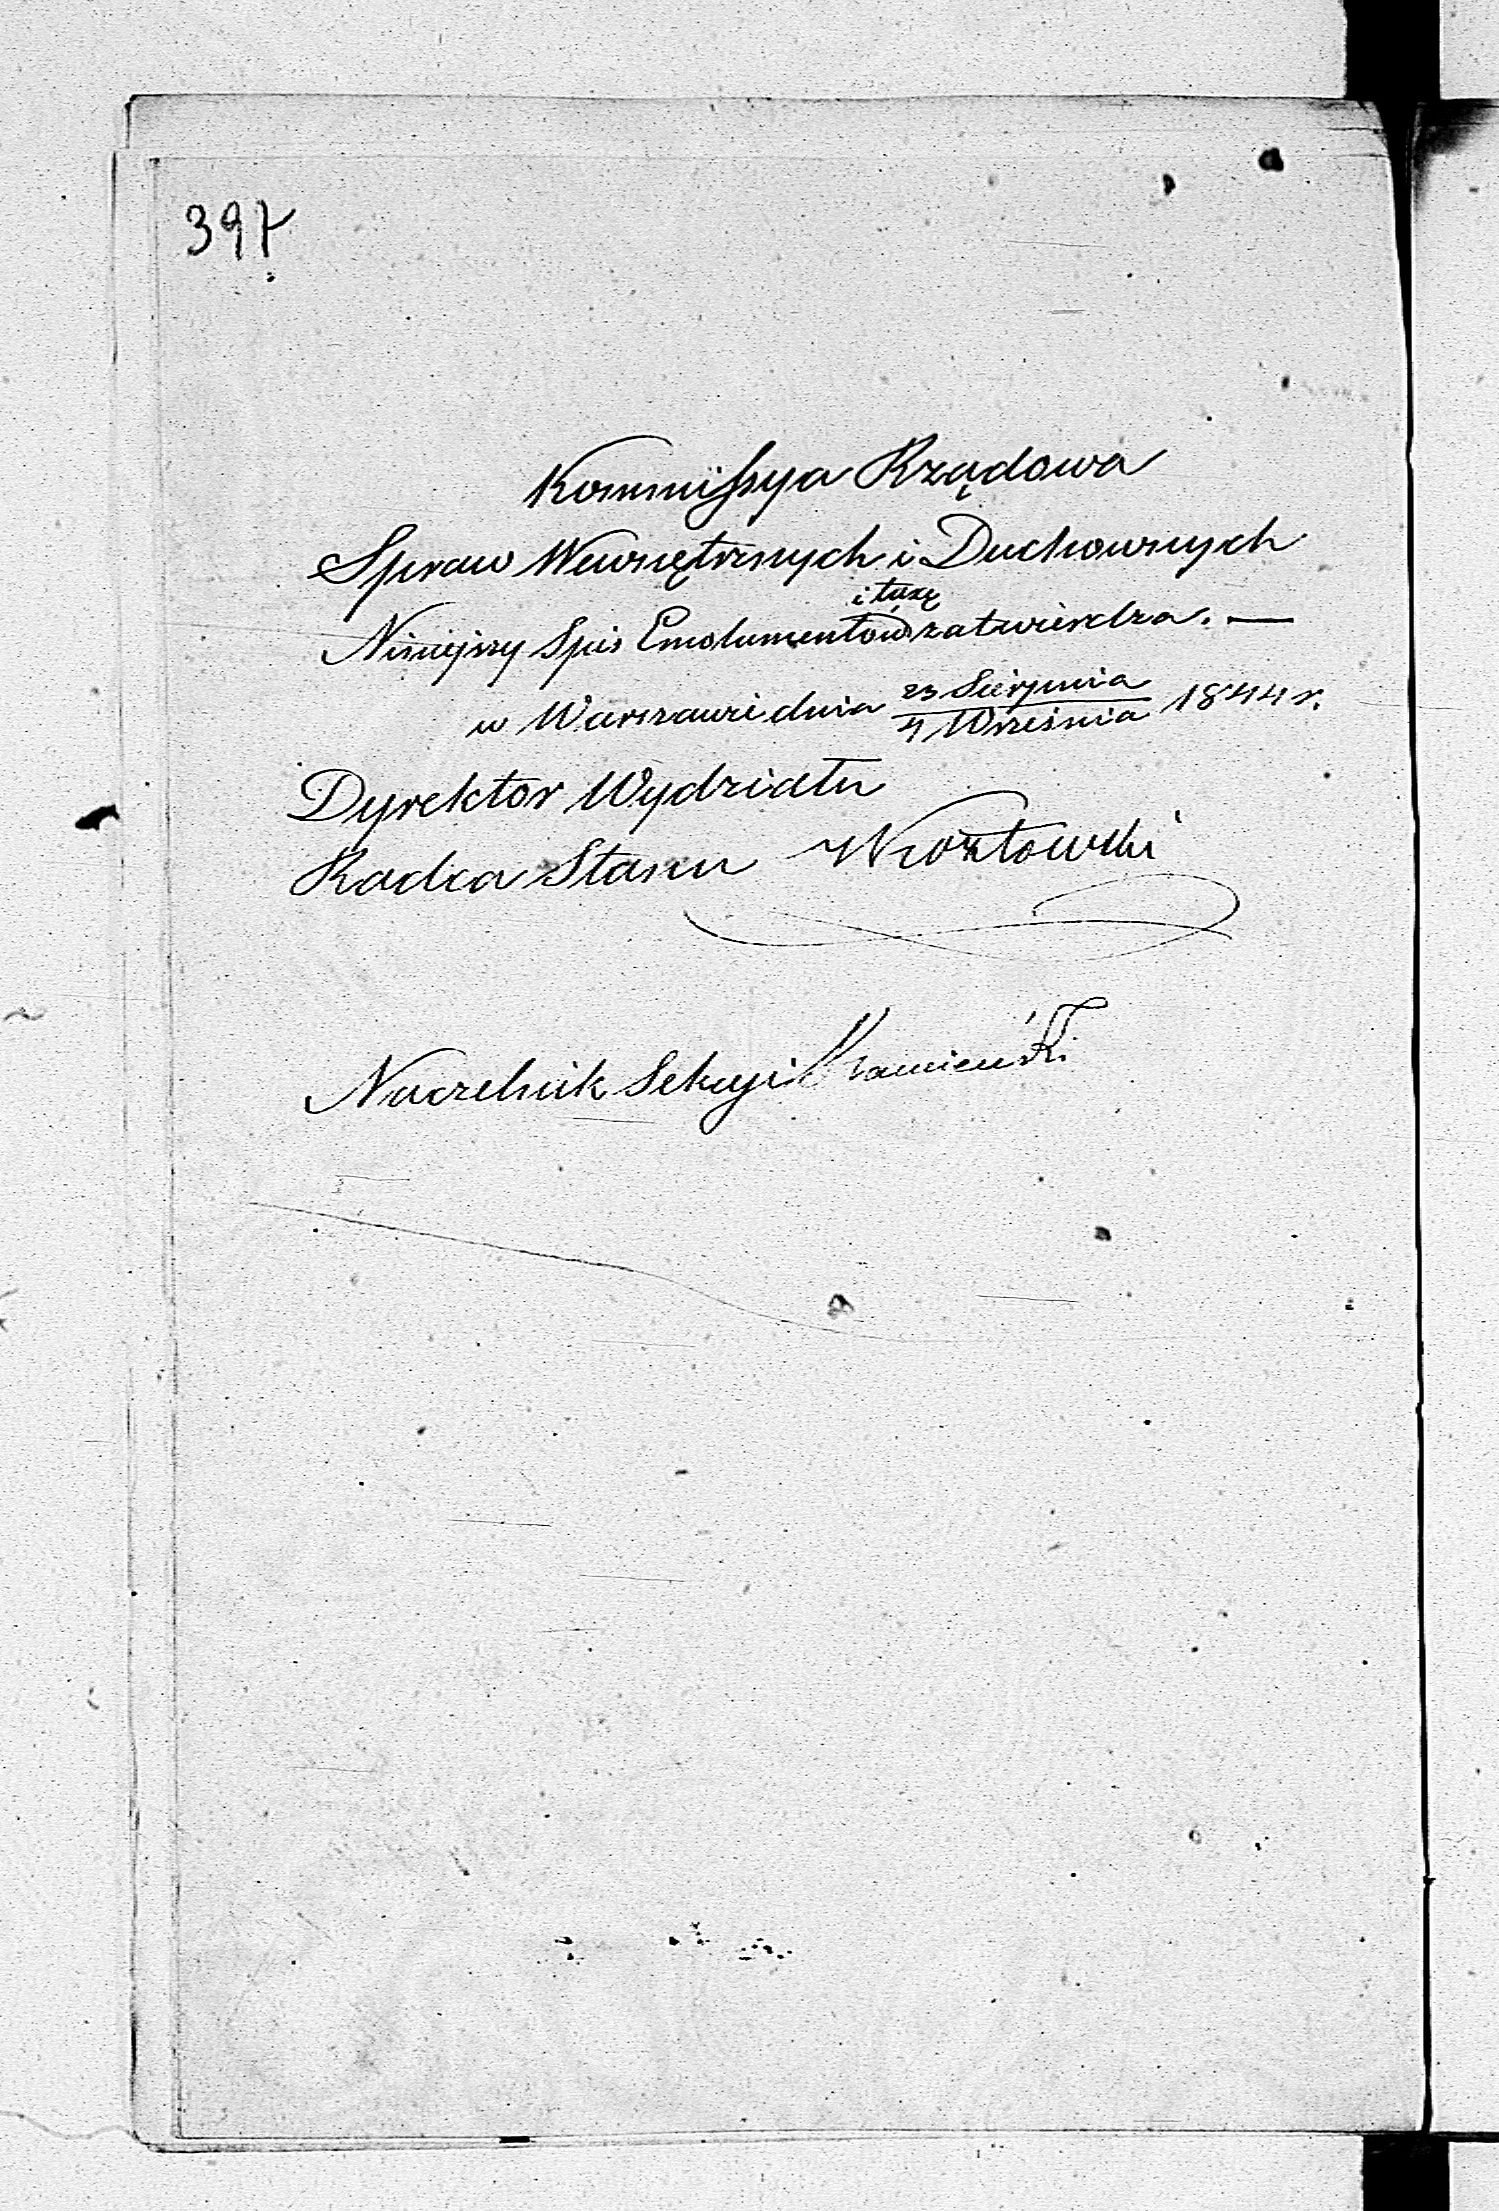 397
Kommissya Rządowa
Spraw Wewnętrznych i Duchownych
i taxę
Niniejszy Spis Emolumentów zatwierdza. —
w Warszawie dnia 23 Sierpnia / 4 Września 1844 r.
Dyrektor Wydziału
Radca Stanu Kozłowski
Naczelnik Sekcyi